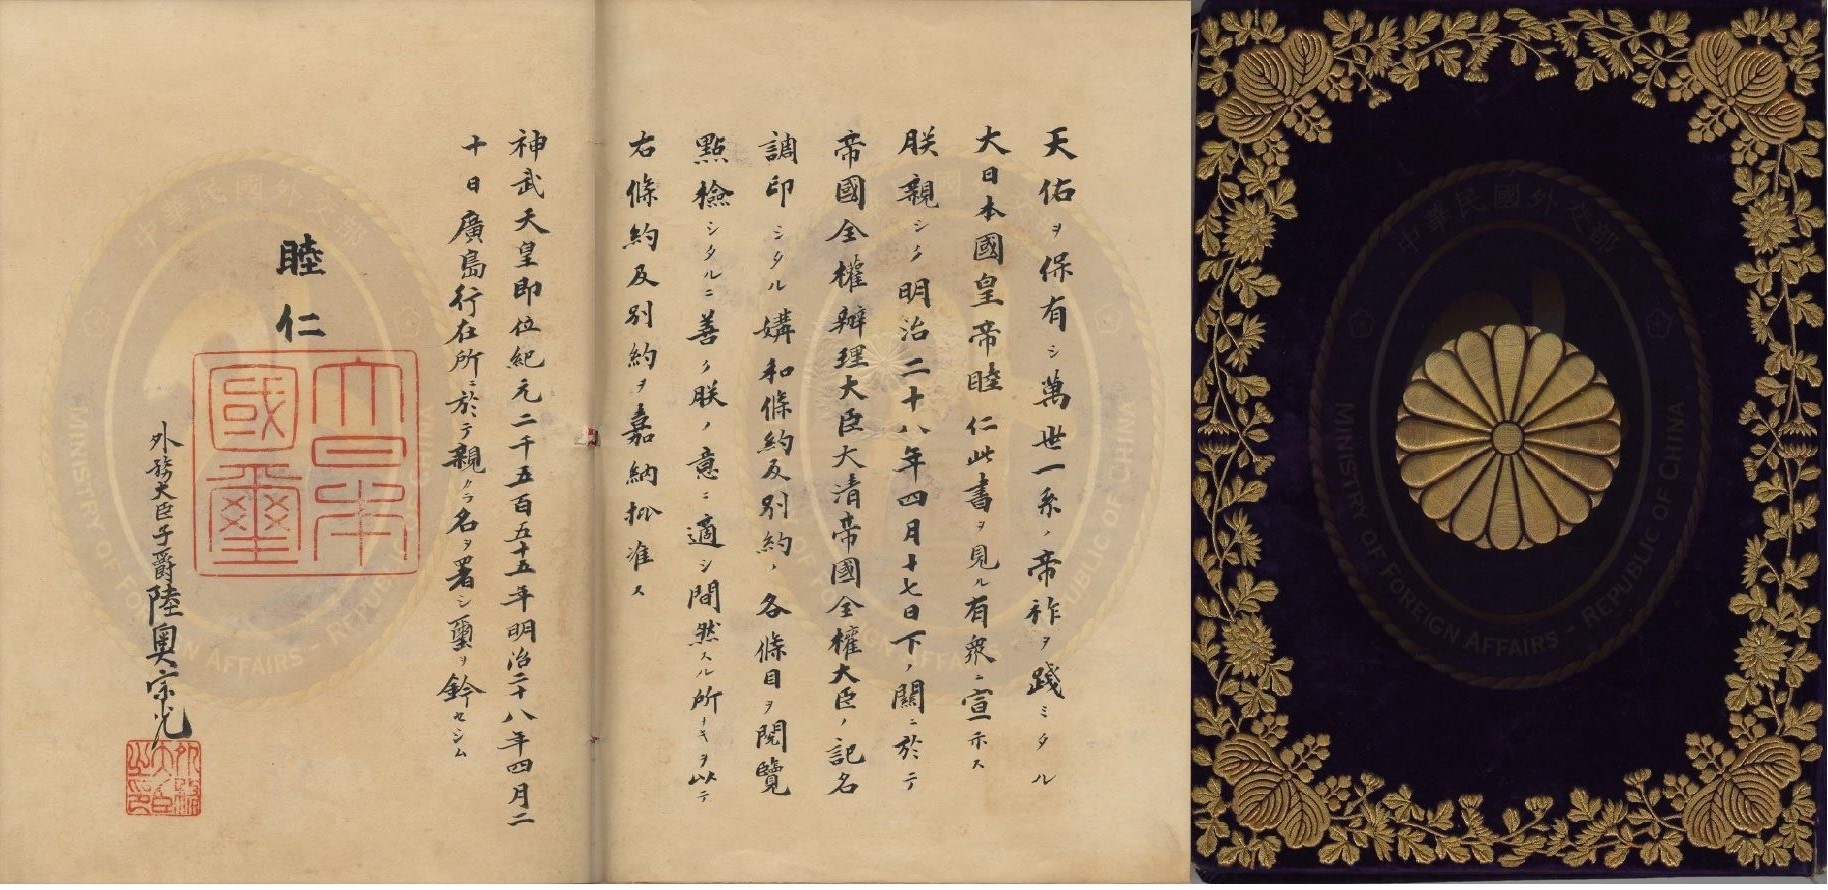 天佑ヲ保有シ萬世一系ノ帝祚ヲ踐ミタル
大日本國皇帝睦仁此書ヲ見ル有衆ニ宣示ス
朕親シク明治二十八年四月十七日下ノ關ニ於テ
帝國全權辦理大臣大清帝國全權大臣ノ記名
調印シタル媾和條約及別約ノ各條目ヲ閱覽
點檢シタルニ善ク朕ノ意ニ適シ間然スル所ナキヲ以テ
右條約及別約ヲ嘉納批准ス
神武天皇即位紀元二千五百五十五年明治二十八年四月二
十日廣島行在所ニ於テ親クヲ名ヲ署シ璽ヲ鈐セシム
睦仁
大日本
國璽
外務大臣子爵陸奧宗光
外務
大臣
之印
中華民國外交部
MINISTRY OF FOREIGN AFFAIRS - REPUBLIC OF CHINA
中華民國外交部
MINISTRY OF FOREIGN AFFAIRS - REPUBLIC OF CHINA
中華民國外交部
MINISTRY OF FOREIGN AFFAIRS - REPUBLIC OF CHINA